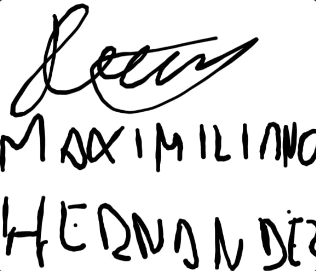 MAXIMILIANO
HERNANDEZ